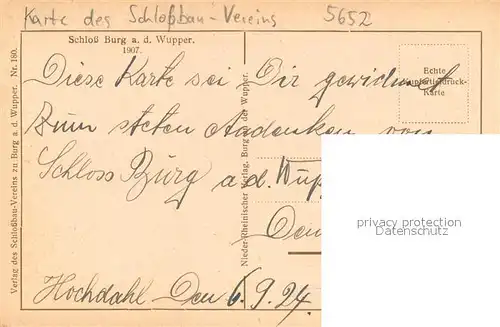 Karte des Schloßbau-Vereins 5652
Schloß Burg a. d. Wupper.
1907.
Echte
Kupfertiefdruck-
Karte
Diese Karte sei Dir gewidmet
Zum steten Andenken von
Schloss Burg a.d. Wup
Den
Hochdahl Den 6.9.24.
Verlag des Schloßbau-Vereins zu Burg a. d. Wupper. Nr. 180.
Nieder-Rheinischer Verlag, Burg an der Wupper.
privacy protection
DarnaResources